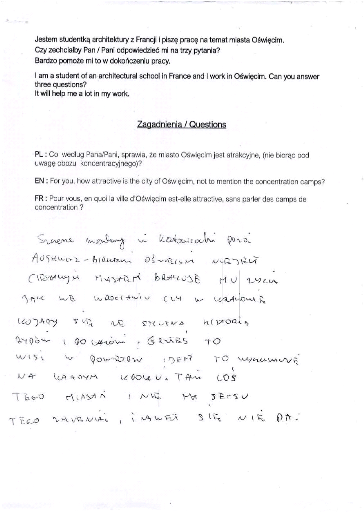 Jestem studentką architektury z Francji i piszę pracę na temat miasta Oświęcim.
Czy zechciałby Pan / Pani odpowiedzieć mi na trzy pytania?
Bardzo pomoże mi to w dokończeniu pracy.
I am a student of an architectural school in France and I work in Oświęcim. Can you answer
three questions?
It will help me a lot in my work.
Zagadnienia / Questions
PL : Co według Pana/Pani, sprawia, że miasto Oświęcim jest atrakcyjne, (nie biorąc pod
uwagę obozu koncentracyjnego)?
EN : For you, how attractive is the city of Oświęcim, not to mention the concentration camps?
FR : Pour vous, en quoi la ville d'Oświęcim est-elle attractive, sans parler des camps de
concentration ?
poza
AUSHWITZ - BIRKENAU OŚWIĘCIM NIE JEST
CIEKAWYM MIASTEM BRAKUJE MU ŻYCIA
JAK WE WROCŁAWIU CZY W KRAKOWIE
SIĘ ZE HISTORIĄ
TO
WISI W POWIETRZU I JEST TO
NA KAŻDYM KROKU. TAK
TEGO MIASTA I NIE MA SENSU
TEGO ZMIENIAĆ, I NAWET SIĘ NIE DA.